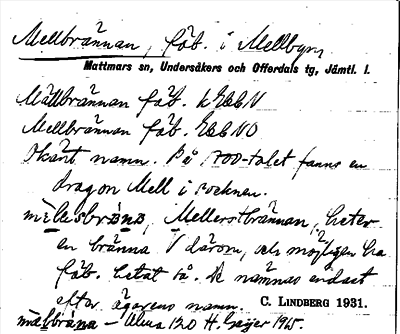 Mellbrännan, fäb. i Mellbyn,
Mattmars sn, Undersåkers och Offerdals tg, Jämtl. l.
Mällbrännan fäb. GEBBV
Mellbrännan fäb. GEBBNO
Okänt namn. På 1700-talet fanns en
dragon Mell i socknen.
Mellerstbrännan, heter
en bränna V därom, och möjligen ha
fäb. hetat så. De nämnas endast
efter ägarens namn. C. LINDBERG 1931.
mälbräna — Alma 120 H. Geijer 1915.